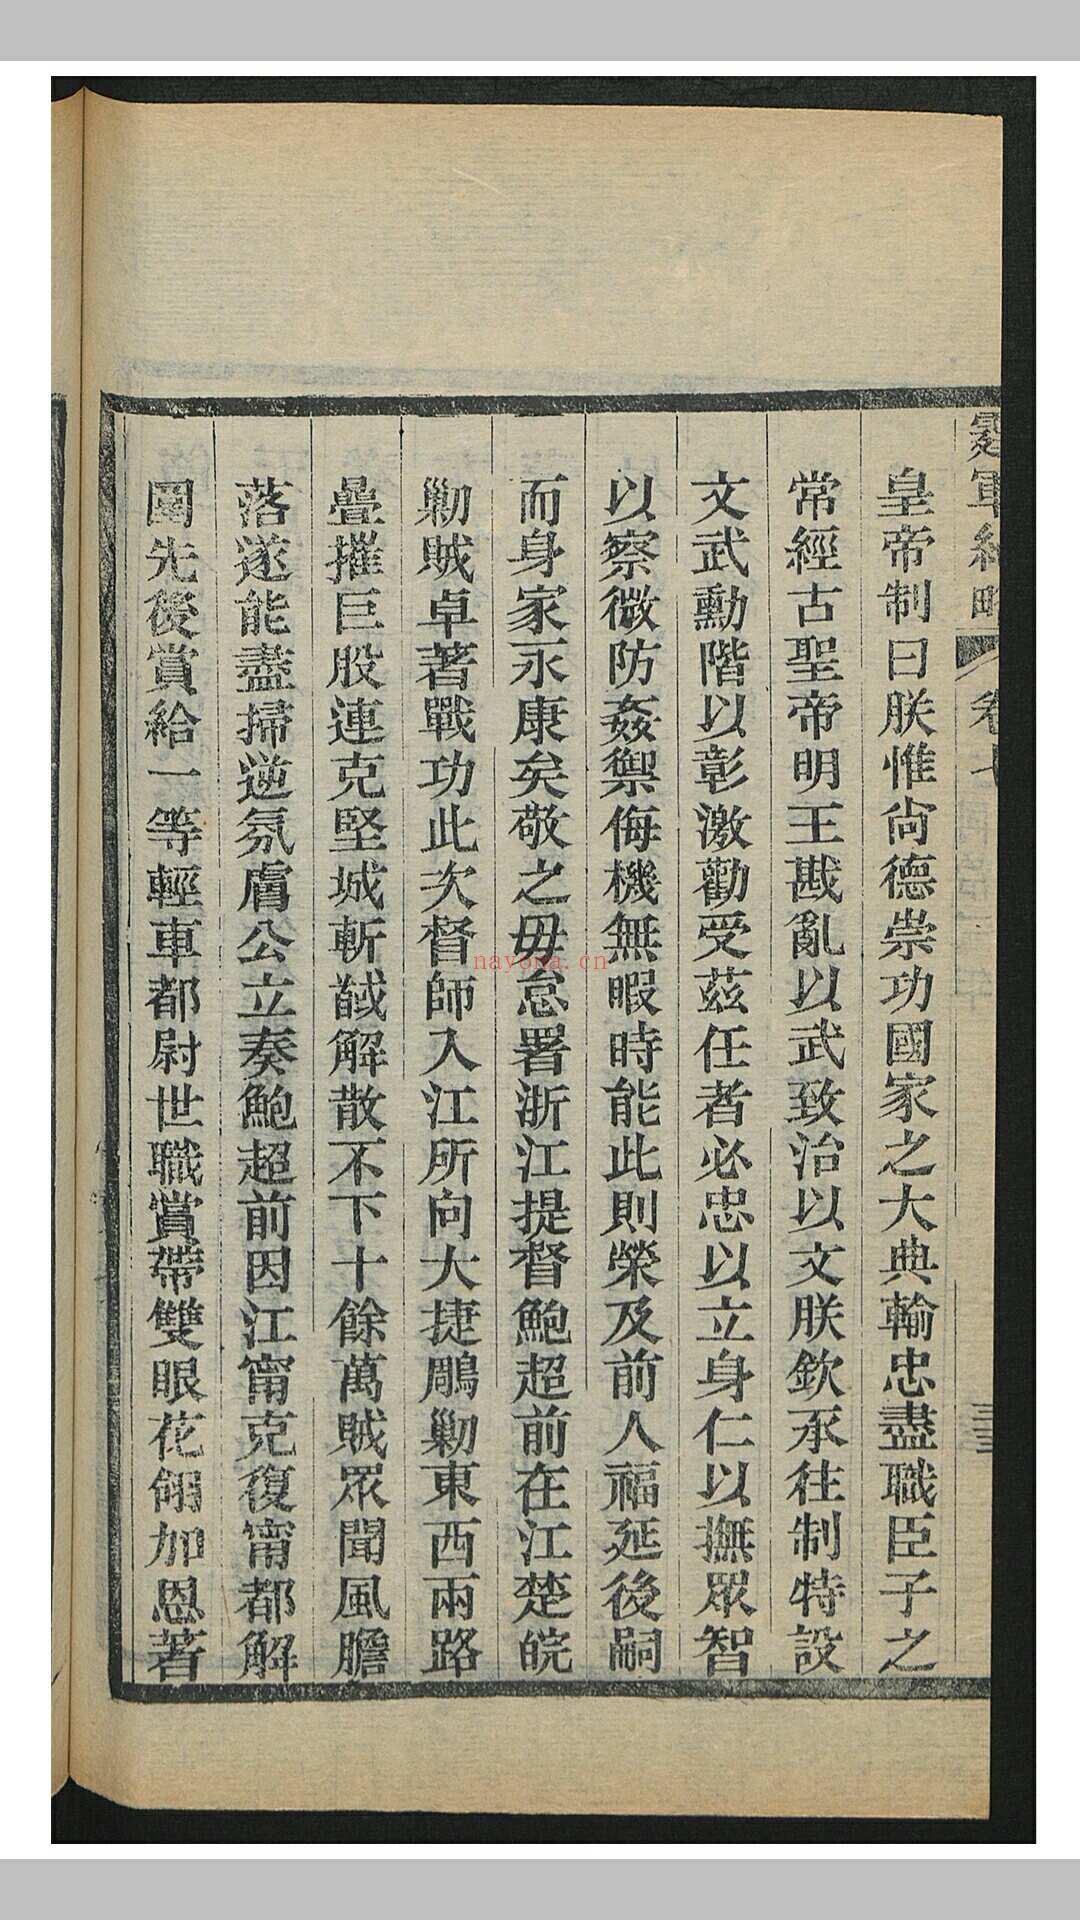 霆軍紀略
卷七
皇帝制曰朕惟尙德崇功國家之大典輸忠盡職臣子之
常經古聖帝明王戡亂以武致治以文朕欽承往制特設
文武勳階以彰激勸受茲任者必忠以立身仁以撫眾智
以察微防姦禦侮機無暇時能此則榮及前人福延後嗣
而身家永康矣敬之毋怠署浙江提督鮑超前在江楚皖
勦賊卓著戰功此次督師入江所向大捷鵰勦東西兩路
疊摧巨股連克堅城斬馘解散不下十餘萬賊眾聞風膽
落遂能盡掃逆氛膚公立奏鮑超前因江甯克復甯都解
圍先後賞給一等輕車都尉世職賞帶雙眼花翎加恩著
nayona.cn